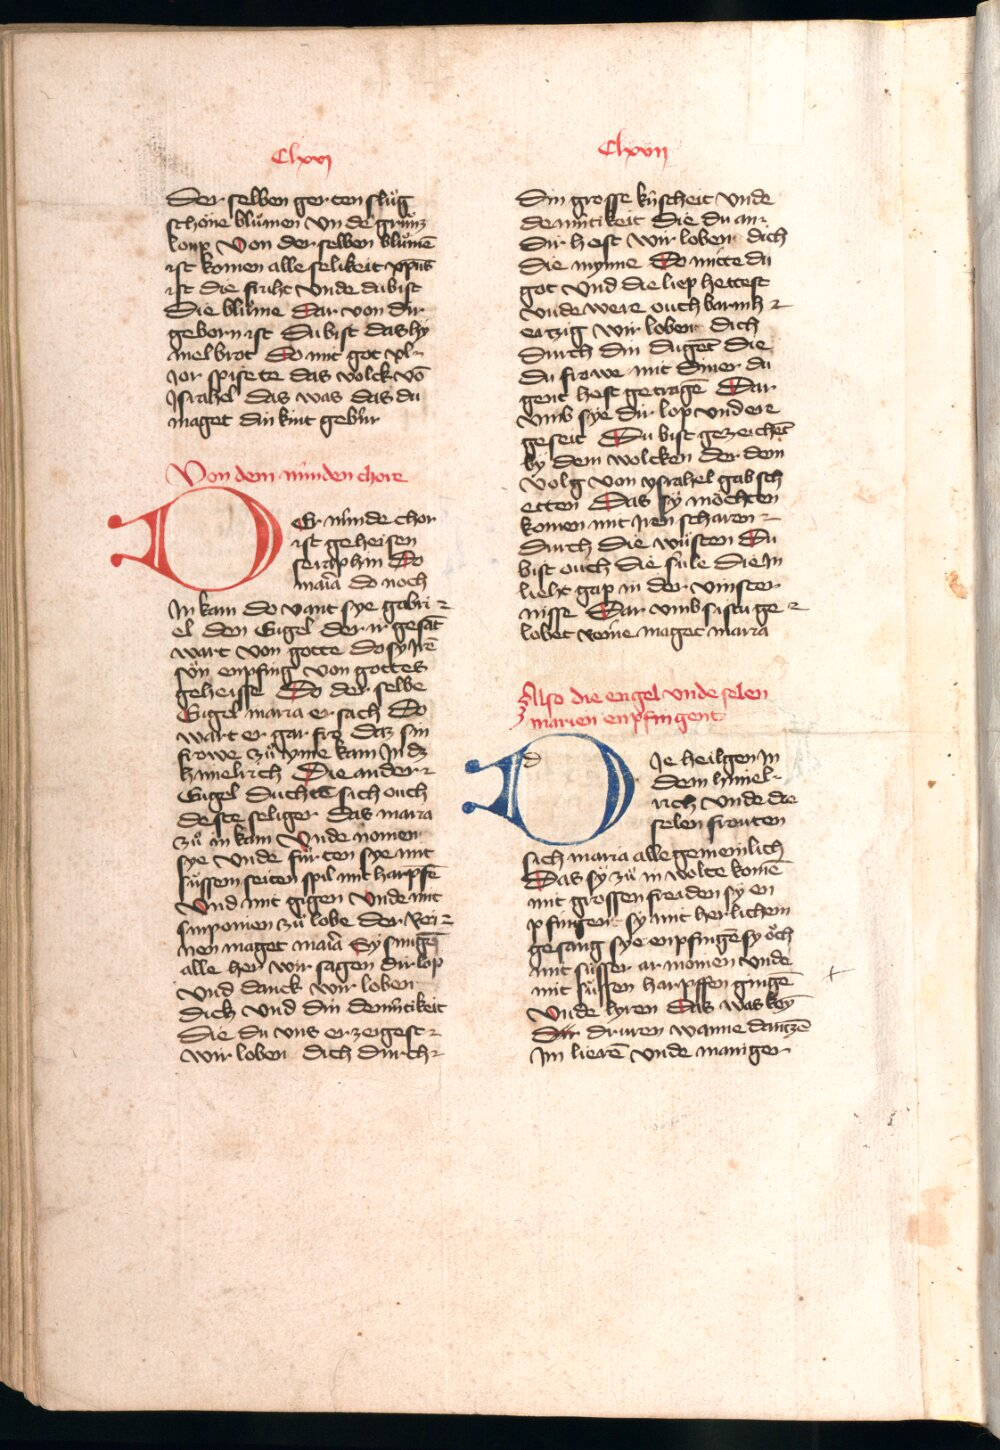 Clxvj
Der selben gerten slůg
schöne blůmen vn de grůnz
loup Von der selben blůmē
ist komen alle selikeit xp̄us
ist die fruht vnde du bist
die blůme Dar von dir
geborn ist Du bist das hy
mel brot Do mit got vl-
Jor spisete das volck vō
Jsrahel das was das du
maget din kint gebůr
Von dem nùnden chore
Der nùnde chor
ist geheisen
seraphin Do
maria do noch
Jn kam do vant sye gabri
el den Engel der ir gesāt
wart von gotte do sy Jrē
sůn enpfing von gottes
geheisse Do der selbe
Engel maria er sach Do
wart er gar fro daz sin
frowe zů yme kam Jn dz
himelrich Die ander
Engel duchte sich ouch
deste seliger das maria
zů in kam Vnde nomen
sye vnde fùr ten sye mit
sùssem seiten spil mit harpfē
Vnd mit gigen vnde mit
simponien zů lobe der Rei
nen maget maria Sy singē
alle her wir sagen dir lop
vnd danck wir loben
dich vnd din demůtikeit
die du vns er zeigest
wir loben dich durch
Clxvij
Din grosse kùscheit vnde
demůtikeit die du an
dir hest wir loben dich
die mynne Do mitte du
got vnd die liep hettest
vnde were ouch barmh
ertzig wir loben dich
durch din dugēt die
du frowe mit diner du
gent hest getragē Dar
vmb sye dir lop vnd ere
geseit Du bist gezeichēt
by dem wolcken der dem
volg von ysrahel gab sch
etten Das sy möchten
komen mit Jren scharen
durch die wůsten Du
bist ouch die sùle die Jn
lieht gap in der vinster
nisse Dar vmb sistu ge
lobet reine maget maria
Also die engel vnde selen
marien enpfingent
Die heilgen Jn
dem hymel-
rich vnde die
selen frouten
sich maria alle gemeinlich
Das sy zů in wolte komē
mit grossen freiden sy en
pfingen sy mit herlichem
gesang sye enpfingē sy öch
mit sùsser ar monien vnde
mit sùssen harpffen gingē
vnde lyren Das was keÿ
druren wanne dantzē
Jm lierē vnde maniger